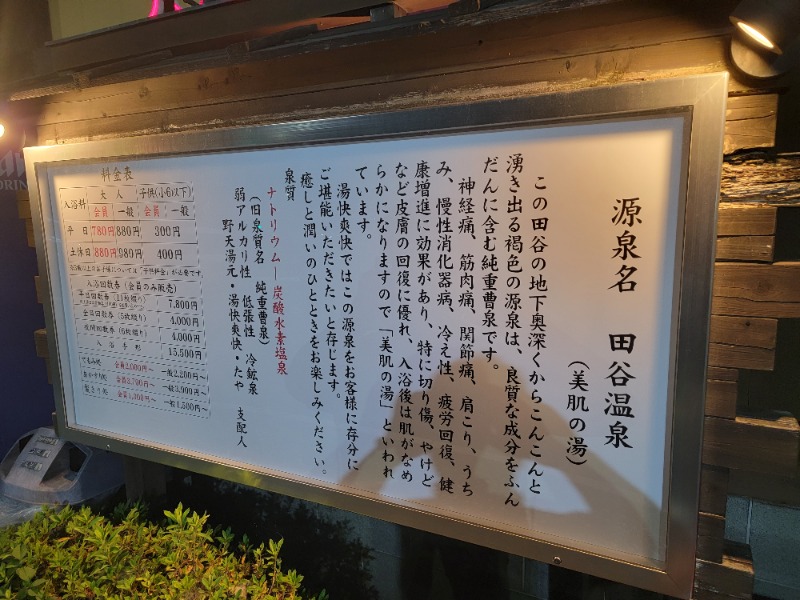 源泉名　田谷温泉
（美肌の湯）
この田谷の地下奥深くからこんこんと
湧き出る褐色の源泉は、良質な成分をふん
だんに含む純重曹泉です。
神経痛、筋肉痛、関節痛、肩こり、うち
み、慢性消化器病、冷え性、疲労回復、健
康増進に効果があり、特に切り傷、やけど
など皮膚の回復に優れ、入浴後は肌がなめ
らかになりますので「美肌の湯」といわれ
ています。
湯快爽快ではこの源泉をお客様に存分に
ご堪能いただきたいと存じます。
癒しと潤いのひとときをお楽しみください。
泉質
ナトリウム―炭酸水素塩泉
（旧泉質名　純重曹泉）
弱アルカリ性　低張性　冷鉱泉
野天湯元・湯快爽快・たや　支配人
料金表
入浴料　大人　子供(小6以下)
会員　一般　会員　一般
平日　780円　880円　300円
土休日　880円　980円　400円
入浴回数券（会員のみ販売）
平日回数券（11枚綴り）　7,800円
全日回数券（5枚綴り）　4,000円
夜間回数券（6枚綴り）　4,000円
入浴手形　15,500円
会員2,000円～　一般2,200円～
会員3,790円～　一般3,990円～
一般1,500円～